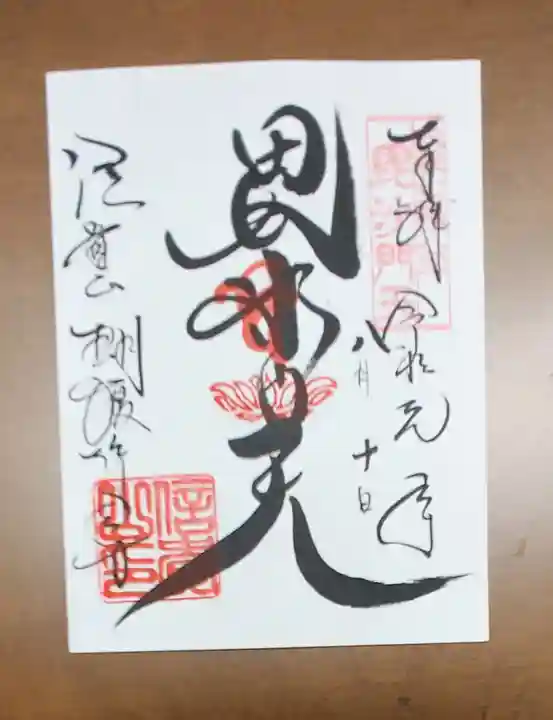 奉拝 令和元年
八月十日
毘沙門天
信貴山 朝護孫子寺